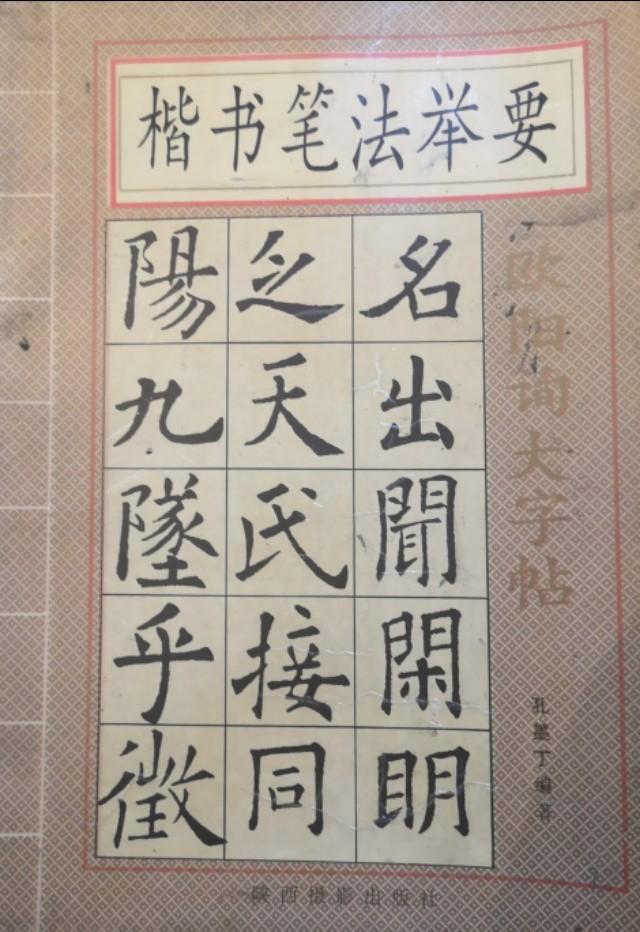 楷书笔法举要
欧阳询大字帖
名出聞閑眀
之天氏接同
陽九墜乎徵
孔墨丁编著
陕西摄影出版社